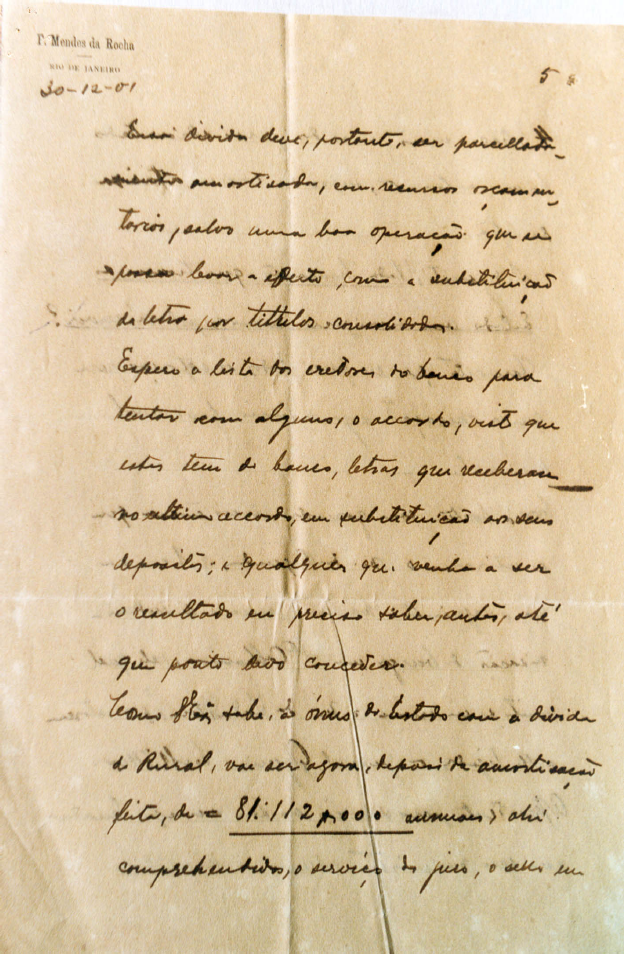 T. Mendes da Rocha
RIO DE JANEIRO
30-12-01
5
Essa divida deve, portanto, ser parcellada-
mente amortisada, com recursos orçamen-
tarios, salvo uma boa operação que se
possa levar a effeito, como a substituição
da letra por titulos consolidados.
Espero a lista dos credores do banco para
tentar com alguns, o accordo, visto que
estes tem do banco, letras que receberam
no ultimo accordo, em substituição aos seus
depositos; e qualquer que venha a ser
o resultado eu preciso saber, antes, até
que ponto devo conceder.
Como sabe, o ónus do Estado com a divida
da Rural, vae ser agora, depois da amortisação
feita, de = 81:112$000 annuaes, ahi
comprehendidos, o serviço do juro, o sello em